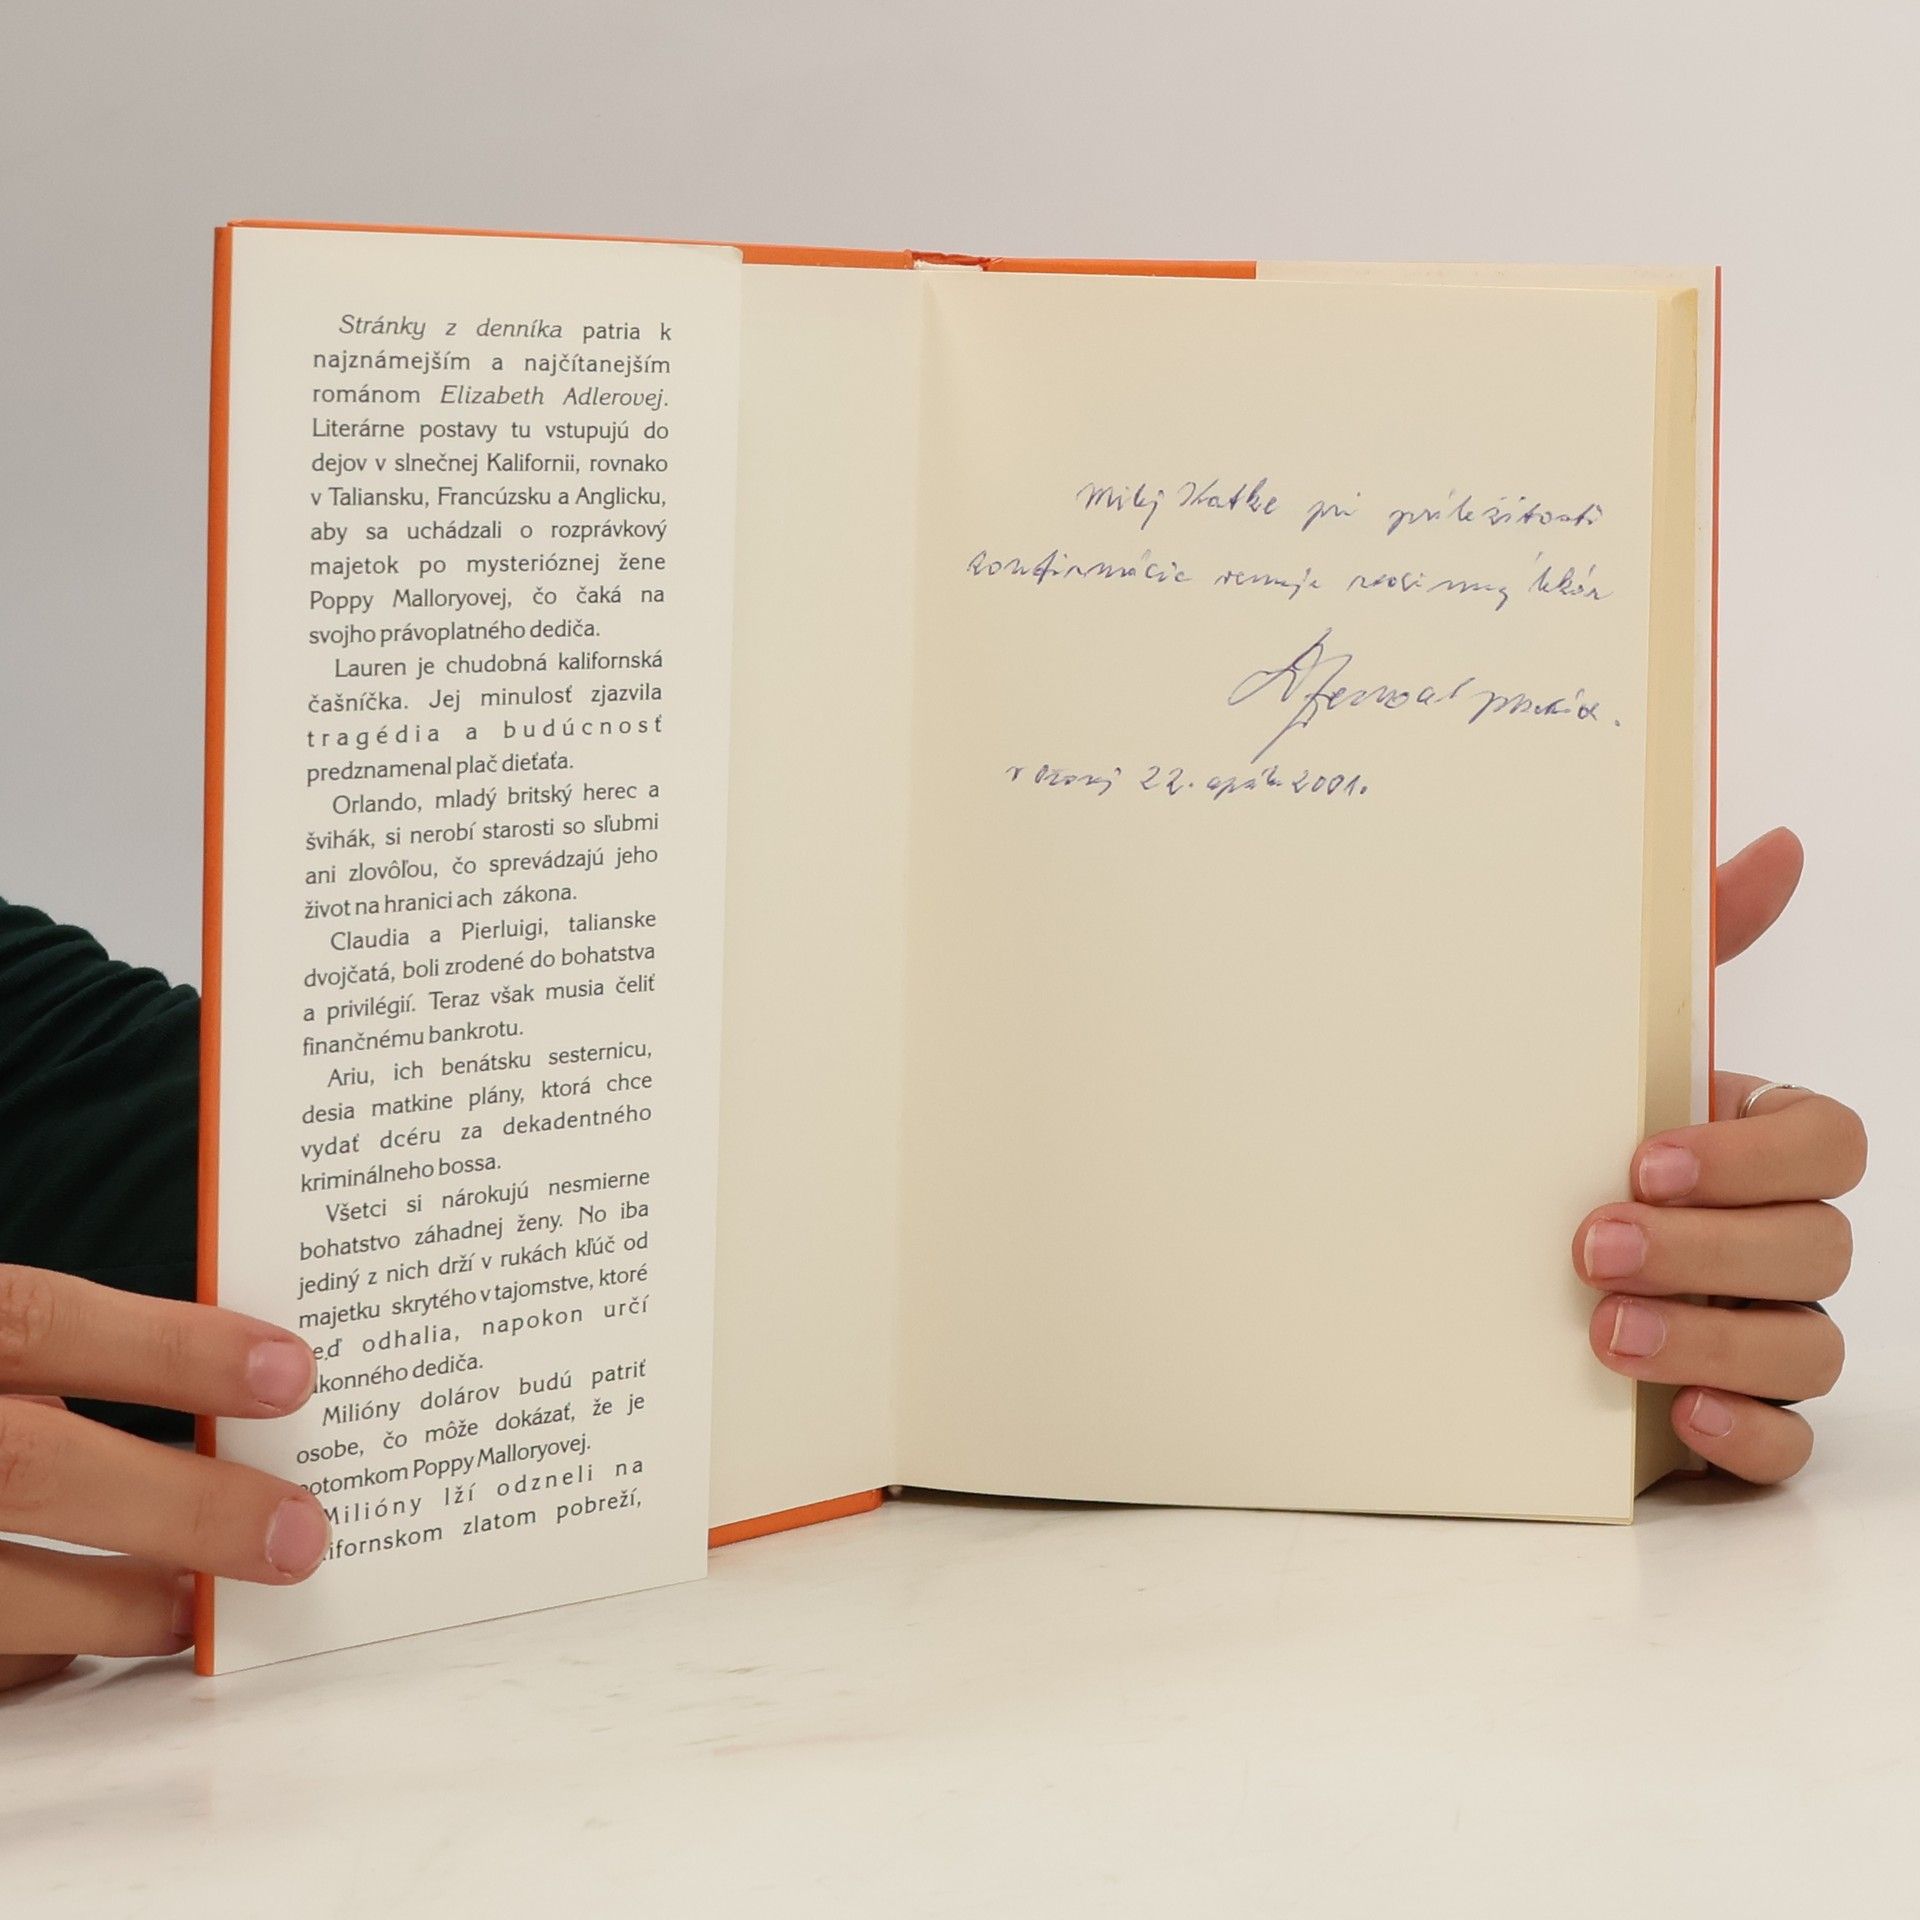 Stránky z denníka patria k
najznámejším a najčítanejším
románom Elizabeth Adlerovej.
Literárne postavy tu vstupujú do
dejov v slnečnej Kalifornii, rovnako
v Taliansku, Francúzsku a Anglicku,
aby sa uchádzali o rozprávkový
majetok po mysterióznej žene
Poppy Malloryovej, čo čaká na
svojho právoplatného dediča.
Lauren je chudobná kalifornská
čašníčka. Jej minulosť zjazvila
tragédia a budúcnosť
predznamenal plač dieťaťa.
Orlando, mladý britský herec a
švihák, si nerobí starosti so sľubmi
ani zlovôľou, čo sprevádzajú jeho
život na hranici ach zákona.
Claudia a Pierluigi, talianske
dvojčatá, boli zrodené do bohatstva
a privilégií. Teraz však musia čeliť
finančnému bankrotu.
Ariu, ich benátsku sesternicu,
desia matkine plány, ktorá chce
vydať dcéru za dekadentného
kriminálneho bossa.
Všetci si nárokujú nesmierne
bohatstvo záhadnej ženy. No iba
jediný z nich drží v rukách kľúč od
majetku skrytého v tajomstve, ktoré
odhalia, napokon určí
konného dediča.
Milióny dolárov budú patriť
osobe, čo môže dokázať, že je
otomkom Poppy Malloryovej.
Milióny lží odzneli na
ifornskom zlatom pobreží,
Milej Katke pri príležitosti
konfirmácie venuje rodinný lekár
22. apríla 2001.